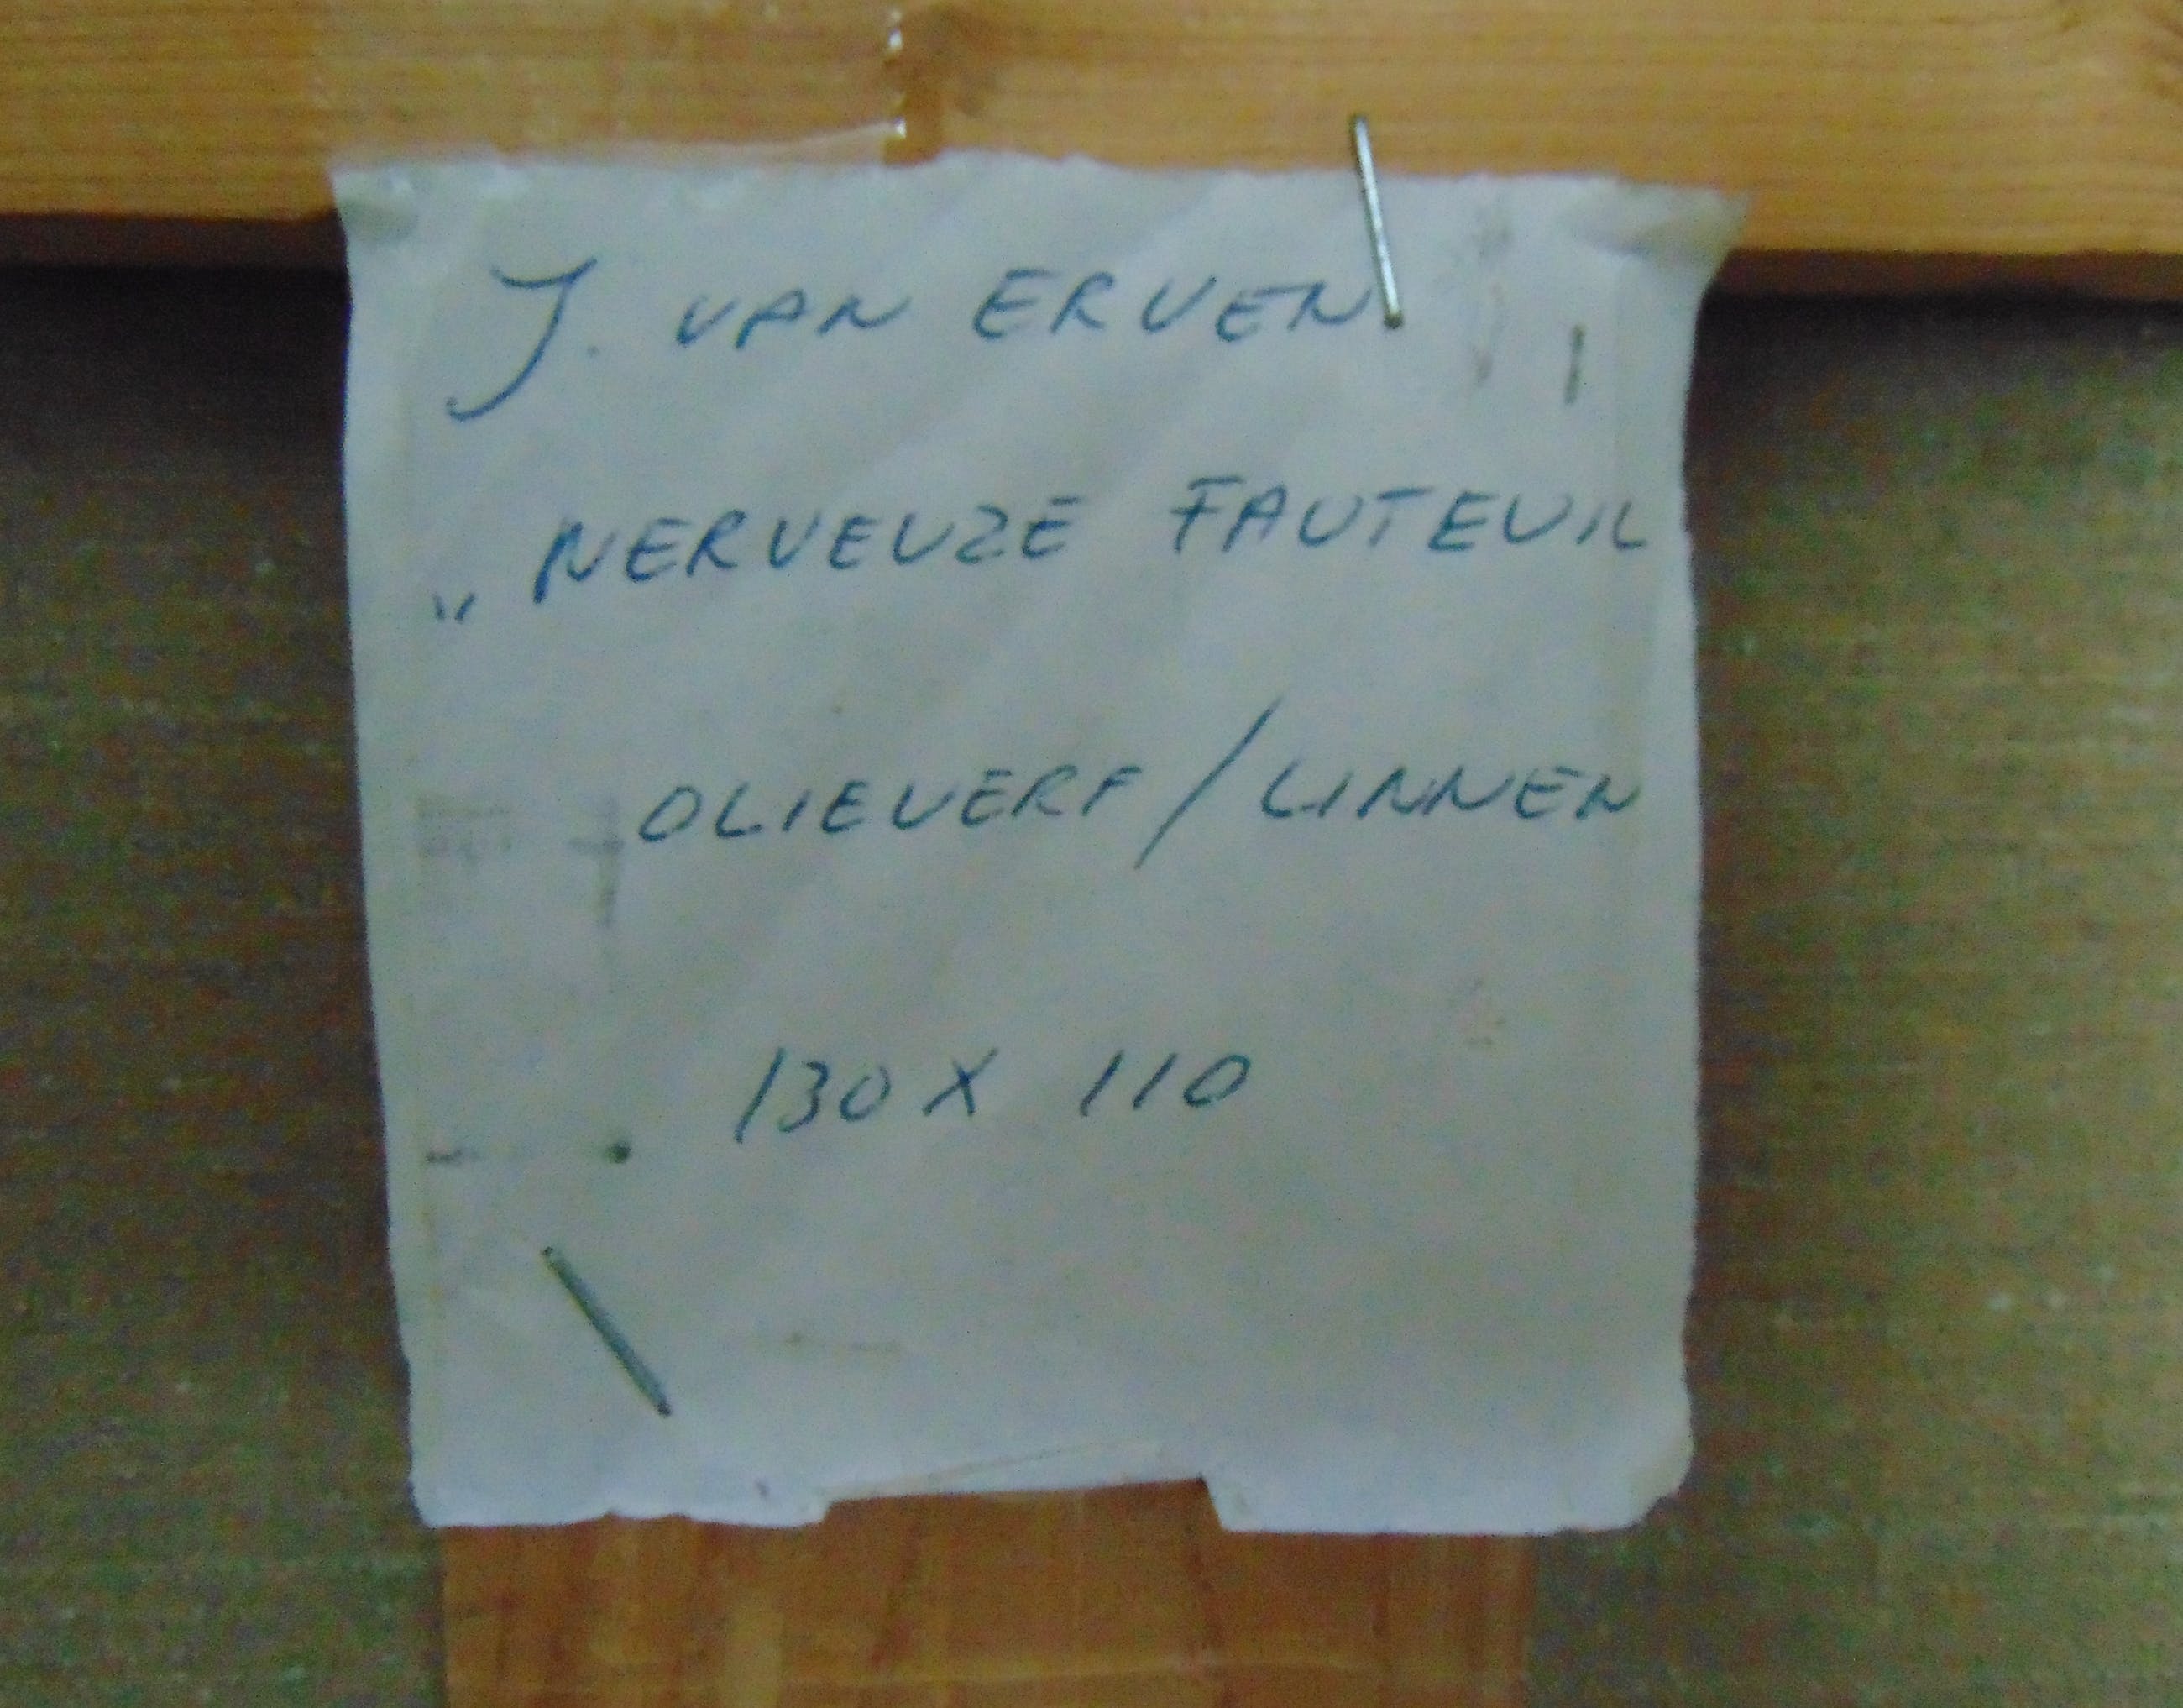 J. VAN ERVEN
„ NERVEUZE FAUTEUIL
OLIEVERF / LINNEN
130 X 110